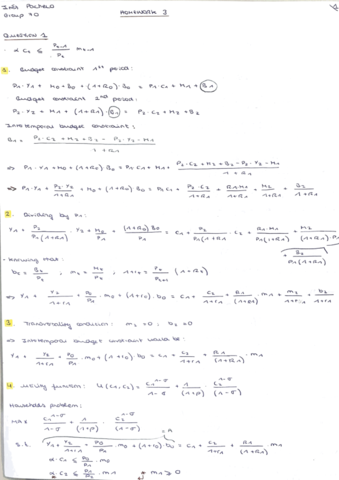 Group 40
Homework 3
Question 1
α C₂ ≤ (P₂₋₁ / P₂) m₂₋₁
1. Budget constraint 1ˢᵗ period:
P₁·Y₁ + M₀ + B₀ + (1+R₀) B₀ = P₁·C₁ + M₁ + B₁
Budget constraint 2ⁿᵈ period:
P₂·Y₂ + M₁ + (1+R₁)·B₁ = P₂·C₂ + M₂ + B₂
Intertemporal budget constraint:
B₁ = (P₂·C₂ + M₂ + B₂ - P₂·Y₂ - M₁) / (1+R₁)
⇒ P₁·Y₁ + M₀ + (1+R₀) B₀ = P₁ C₁ + M₁ + (P₂·C₂ + M₂ + B₂ - P₂·Y₂ - M₁) / (1+R₁)
⇒ P₁·Y₁ + P₂·Y₂ / (1+R₁) + M₀ + (1+R₀) B₀ = P₁C₁ + P₂·C₂ / (1+R₁) + R₁M₁ / (1+R₁) + M₂ / (1+R₁) + B₂ / (1+R₁)
2. Dividing by P₁:
Y₁ + P₂ / (P₁(1+R₁)) · Y₂ + M₀ / P₁ + (1+R₀) B₀ / P₁ = C₁ + P₂ / (P₁(1+R₁)) · C₂ + R₁·M₁ / (P₁(1+R₁)) + M₂ / ((1+R₁)·P₁) + B₂ / (P₁(1+R₁))
- Knowing that:
b₂ = B₂ / P₂ , m₂ = M₂ / P₂ , 1+r₂ = P₂ / P₂₊₁ (1+R₂)
⇒ Y₁ + Y₂ / (1+r₁) + P₀ / P₁ · m₀ + (1+r₀)·b₀ = C₁ + C₂ / (1+r₁) + R₁ / (1+R₁) · m₁ + m₂ / (1+r₁) + b₂ / (1+r₁)
3. Transversality condition: m₂ = 0 ; b₂ = 0
⇒ Intertemporal budget constraint would be:
Y₁ + Y₂ / (1+r₁) + P₀ / P₁ · m₀ + (1+r₀) b₀ = C₁ + C₂ / (1+r₁) + R₁ / (1+R₁) · m₁
4. Utility function: U(C₁, C₂) = C₁^(1-σ) / (1-σ) + 1 / (1+ρ) · C₂^(1-σ) / (1-σ)
Households problem:
MAX C₁^(1-σ) / (1-σ) + 1 / (1+ρ) · C₂^(1-σ) / (1-σ)
s.t. Y₁ + Y₂ / (1+r₁) + P₀ / P₁ · m₀ + (1+r₀) b₀ = C₁ + C₂ / (1+r₁) + R₁ / (1+R₁) m₁
α·C₁ ≤ P₀ / P₁ · m₀
α·C₂ ≤ P₁ / P₂ · m₁
m₁ ≥ 0